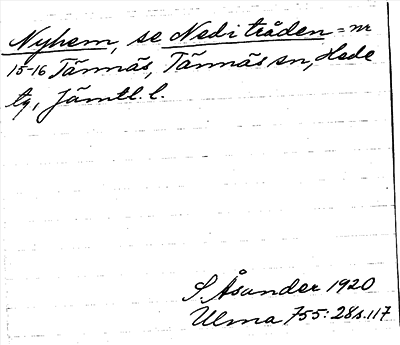 Nyhem, se Nedi tråden = nr
15-16 Tännäs, Tännäs sn, Hede
tg, Jämtl. l.
S Åsander 1920
Ulma 755:28 s.117